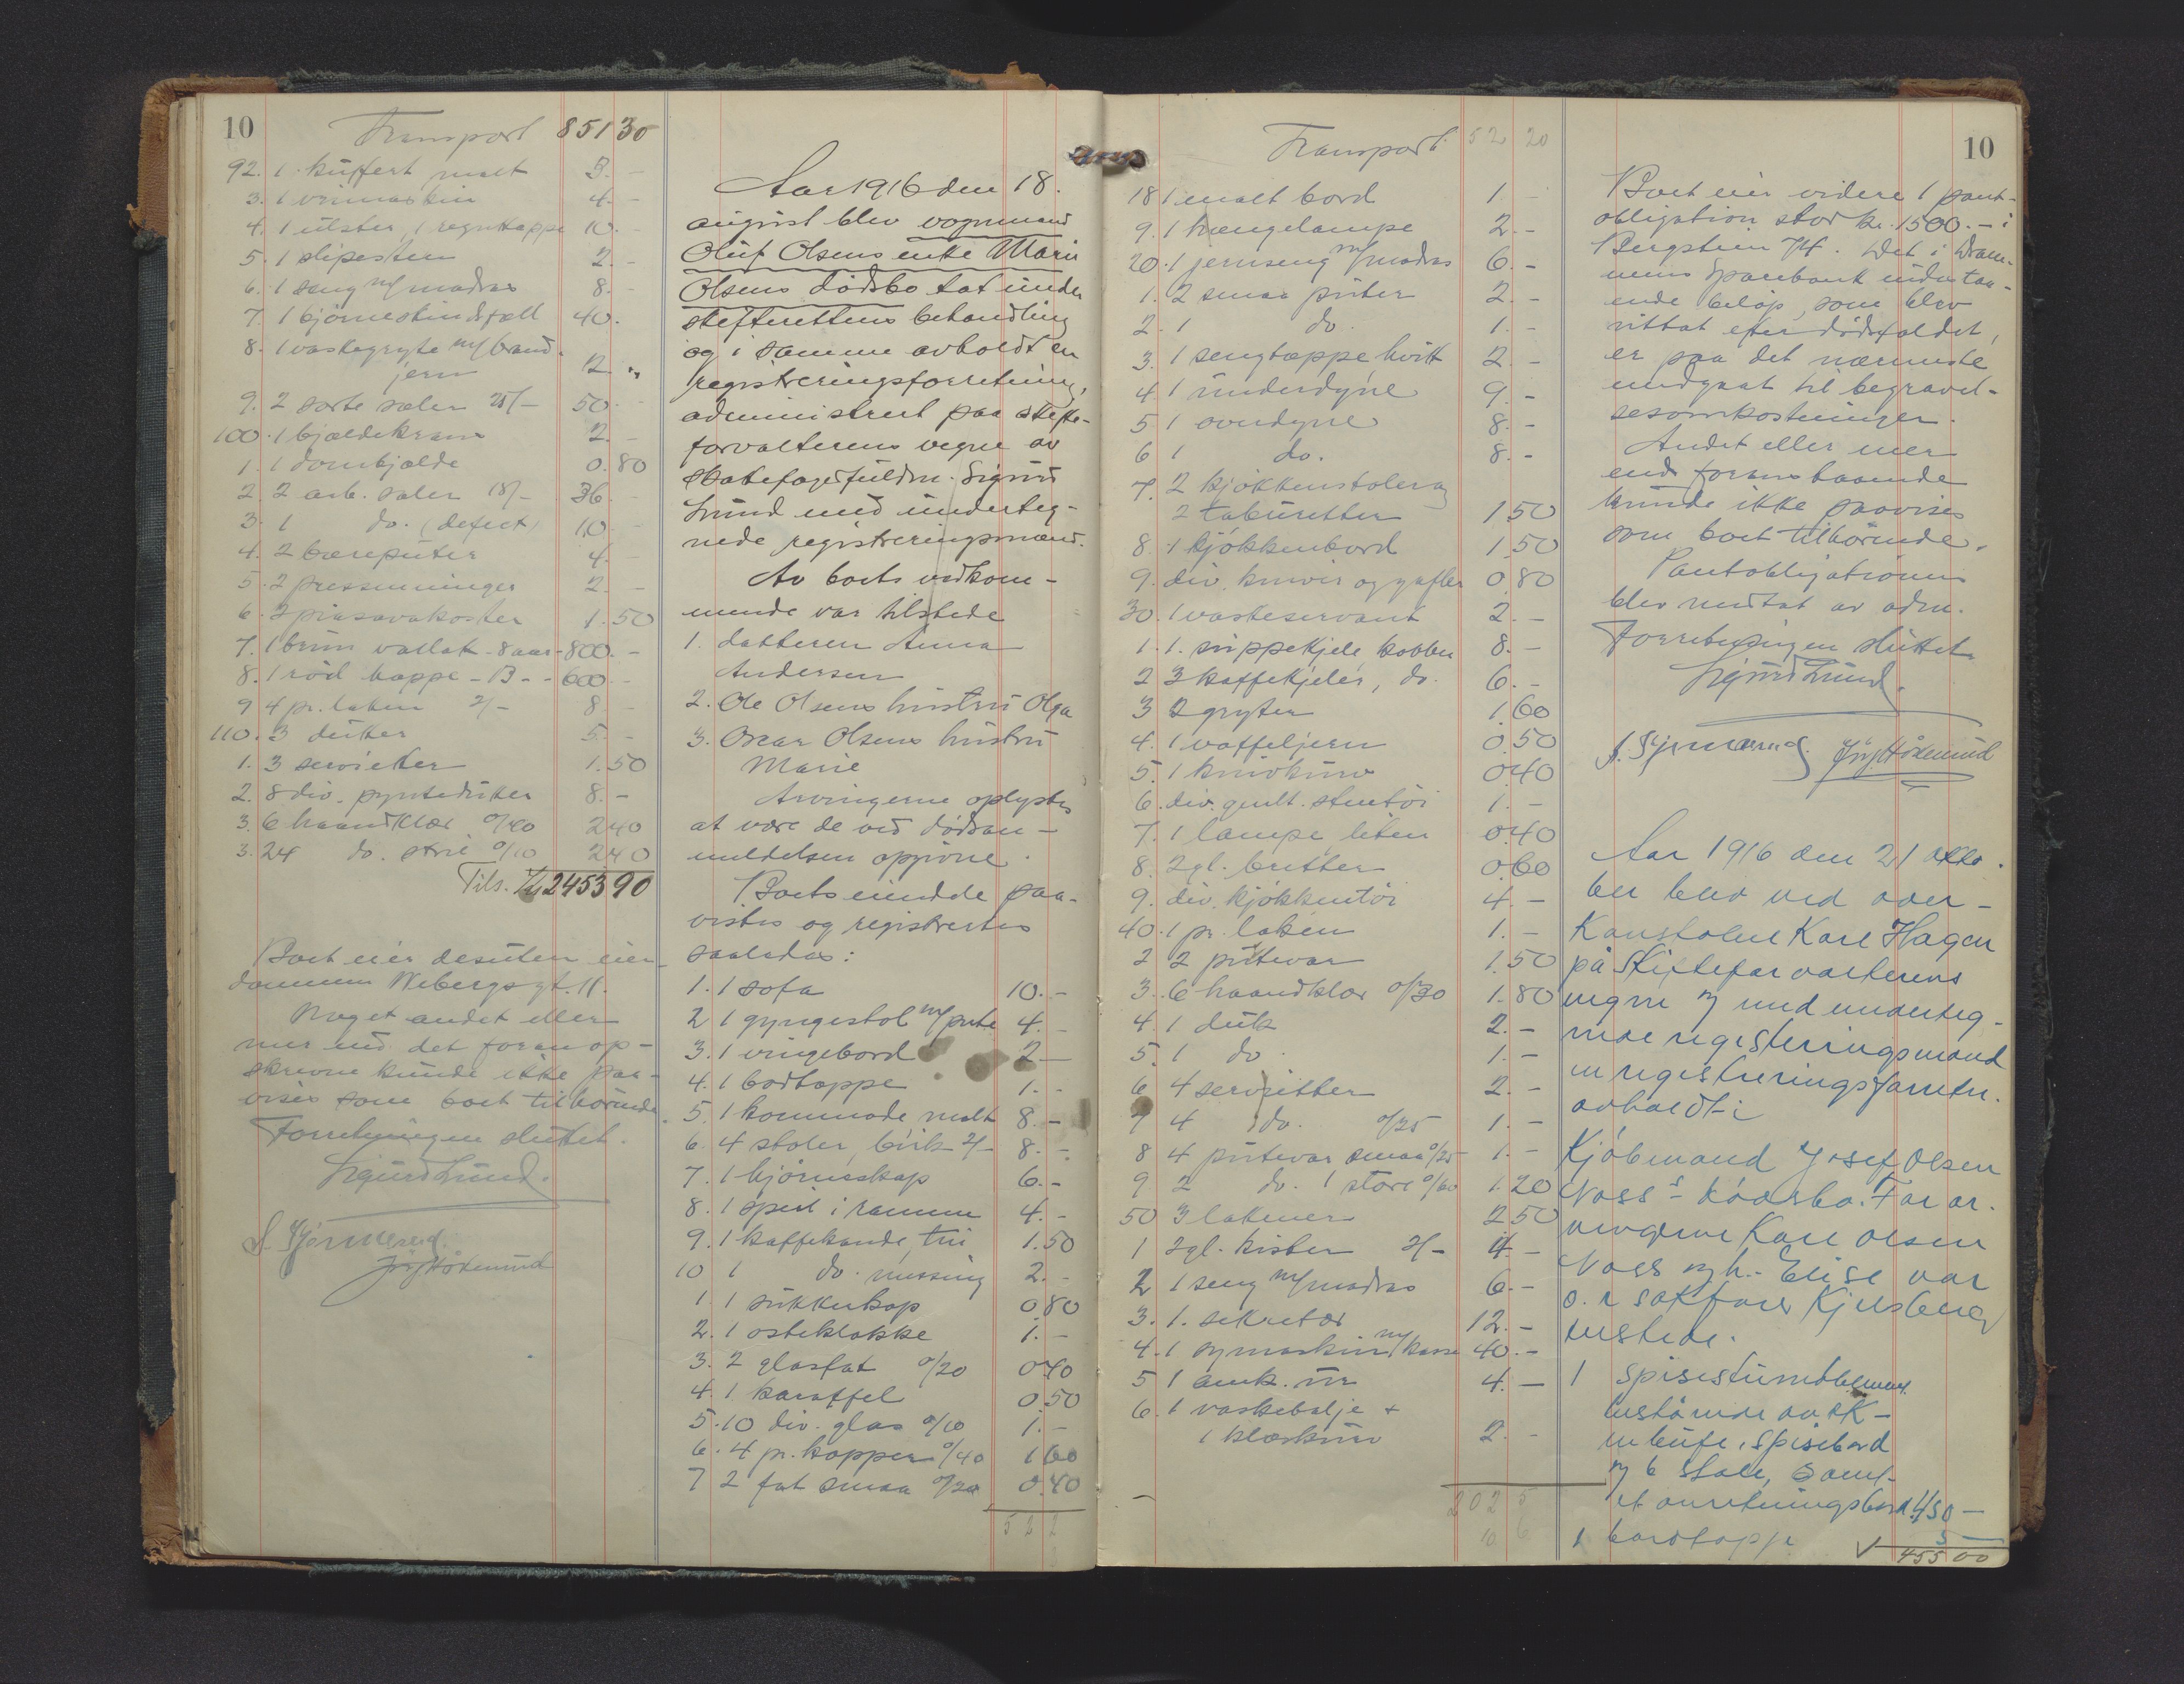 10
Transport 851 30
92. 1 kuffert malt 3. -
3. 1 vrimaskin 4. -
4. 1 ulster, 1 regnkappe 10. -
5. 1 slipesten 2. -
6. 1 seng m/madras 8. -
7. 1 bjørneskindsfæll 40. -
8. 1 vaskegryte m/brand-
jern 12 "
9. 2 sorte sæler 25/- 50. -
100. 1 bjældekrans 2. -
1. 1 dombjælde 0.80
2. 2 arb. sæler 18/- 36. -
3. 1 do. (defect) 10. -
4. 2 bæreputer 4. -
5. 2 pressenninger 2. -
6. 2 piasavakoster 1.50
7. 1 brun vallak - 8 aar - 800. -
8. 1 rød hoppe - 13 - - 600. -
9 4 pr. laken 2/- 8. -
110. 3 duker 5. -
1. 3 servietter 1.50
2. 8 div. pyntedukker 8. -
3. 6 haandklær 0/40 2.40
3. 24 do. strie 0/10 2.40
Tils. 2453 90
Boet eier desuten eien-
dommen Wibergs gt. 11.
Noget andet eller
mer end det foran op-
skrevne kunde ikke paa-
vises som boet tilhørende.
Forretningen sluttet.
Sigurd Lund.
Aar 1916 den 18.
august blev vognmand
Oluf Olsens enke Marie
Olsens dødsbo tat under
skifterettens behandling
og i samme avholdt en
registreringsforretning,
administrert paa skifte-
forvalterens vegne av
skatefogedfuldm. Sigurd
Lund med underteg-
nede registreringsmænd.
Av boets vedkom-
mende var tilstede
1. datteren Anna
Andersen
2. Ole Olsens hustru Olga
3. Oscar Olsens hustru
Marie
Arvingerne oplystes
at være de ved dødsan-
meldelsen opgivne.
Boets eiendele paa-
vistes og registrertes
saaledes:
1. 1 sofa 10. -
2 1 gyngestol m/pute 4. -
3. 1 vingebord 2 -
4. 1 bordtæppe 1. -
5. 1 kommode, malt 8. -
6. 4 stoler, birk 2/- 8. -
7. 1 hjørneskap 6. -
8. 1 speil i ramme 4. -
9. 1 kaffekande, tin 1.50
10 1 do. messing 2. -
1. 1 sukkerkop 0.80
2. 1 osteklokke 1. -
3. 2 glasfat 0/20 0.40
4. 1 karaffel 0.50
5. 10 div. glas 0/10 1. -
6. 4 pr. kopper 0/40 1.60
7 2 fat smaa 0/20 0.40
52 2
10
Transport 52 20
18 1 malt bord 1 -
9. 1 hængelampe 2. -
20. 1 jernseng m/madras 6. -
1. 2 smaa puter 2. -
2. 1 do. 1. -
3. 1 sengtæppe, hvitt 2. -
4. 1 underdyne 9. -
5 1 overdyne 8. -
6 1 do. 8. -
7. 2 kjøkkenstoler og
2 taburetter 1 50
8. 1 kjøkkenbord 1.50
9. div. kniver og gafler 0.80
30. 1 vaskeservant 2. -
1. 1. suppekjele, kobber 8. -
2 3 kaffekjeler, do. 6. -
3 2 gryter 1.60
4. 1 vaffeljern 0.50
5. 1 knivkurv 0.40
6. div. gmlt. stentøi 1. -
7. 1 lampe, liten 0.40
8. 2 gl. bretter 0.60
9. div. kjøkkentøi 4 -
40. 1 pr. laken 1. -
2 2 putevar 1.50
3. 6 haandklær 0/30 1.80
4. 1 duk 2. -
5. 1 do. 1. -
6 4 servietter 2. -
7 4 do. 0/25 1. -
8 4 putevar smaa 0/25 1. -
9 2 do. store 0/60 1.20
50 3 lakener 2 50
1 2 gl. kister 2/- 4. -
2 1 seng m/madras 6. -
3. 1. sekretær 12. -
4. 1 symaskin m/kasse 40. -
5 1 amk. ur 4. -
6. 1 vaskebalje +
1 klæskurv 2. -
Boet eier videre 1 pant-
obligation stor kr. 1500. - i
Bergstien 74. Det i Dram-
mens Sparebank indestaa-
ende beløp, som blev
uttat efter dødsfaldet,
er paa det nærmeste
medgaat til begravel-
sesomkostninger.
Andet eller mer
end foranstaaende
kunde ikke paavises
som boet tilhørende.
Pantobligationen
blev mottat av adm.
Forretningen sluttet.
Sigurd Lund.
Aar 1916 den 21 okto-
ber blev ved over-
Konstabel Karl Hagen
på Skifteforvalterens
vegne og med underteg-
nede registeringsmænd
en registreringsforretn.
avholdt i
Kjøbmand Josef Olsen
Voss's dødsbo. For ar-
vingerne Karl Olsen
Voss og h. Elise var
o.r sakfører Kjelsberg
tilstede.
1 Spisestumøblement
bestående av ek-
ne bufe, spisebord
og 6 stole, samt
et anretningsbord 450 -
1 bordtæppe 5 -
455 00